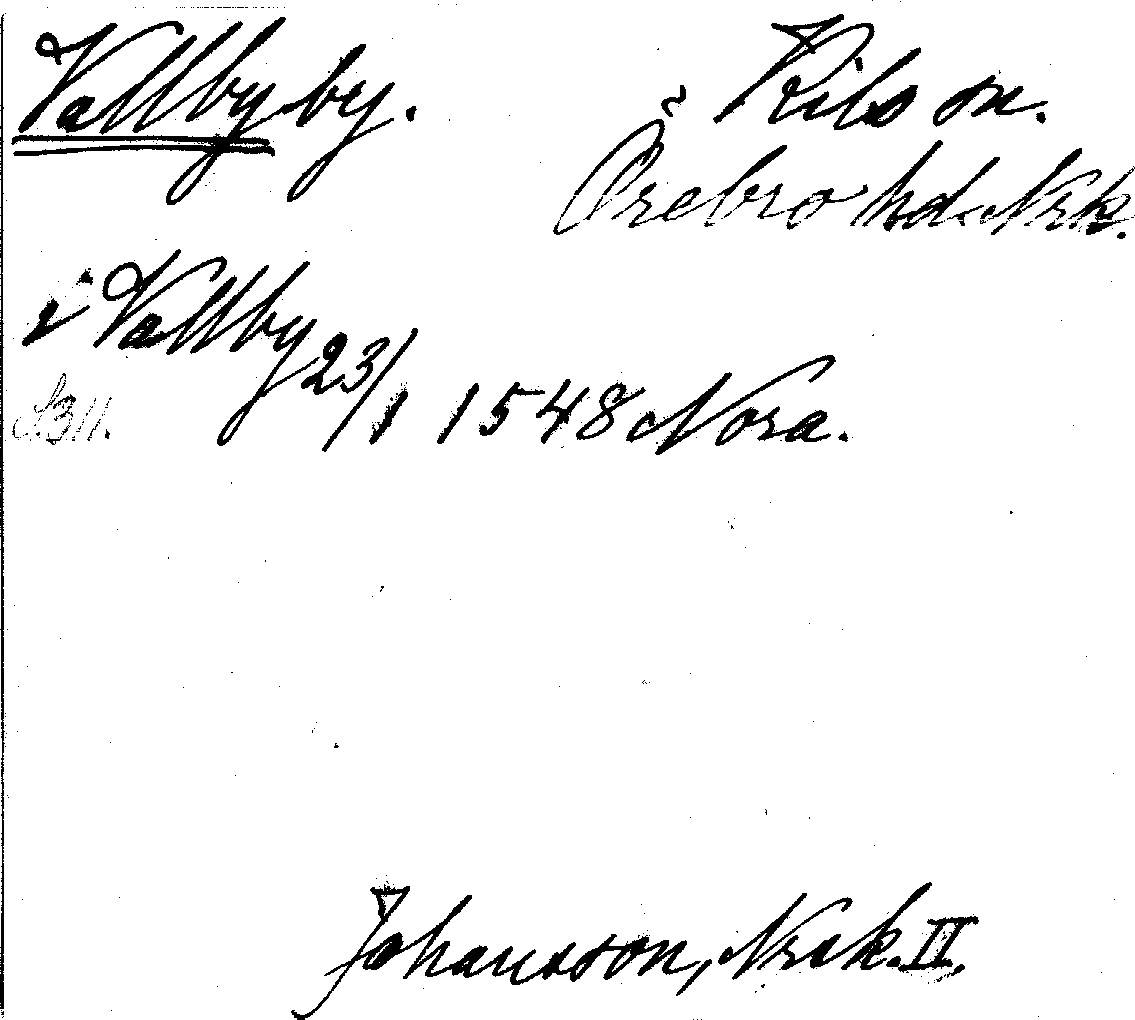 Vallby by. Kils sn.
Örebro hd. Nrk.
i Vallby 23/1 1548 Nora.
S. 311.
Johansson, Nrk. II.